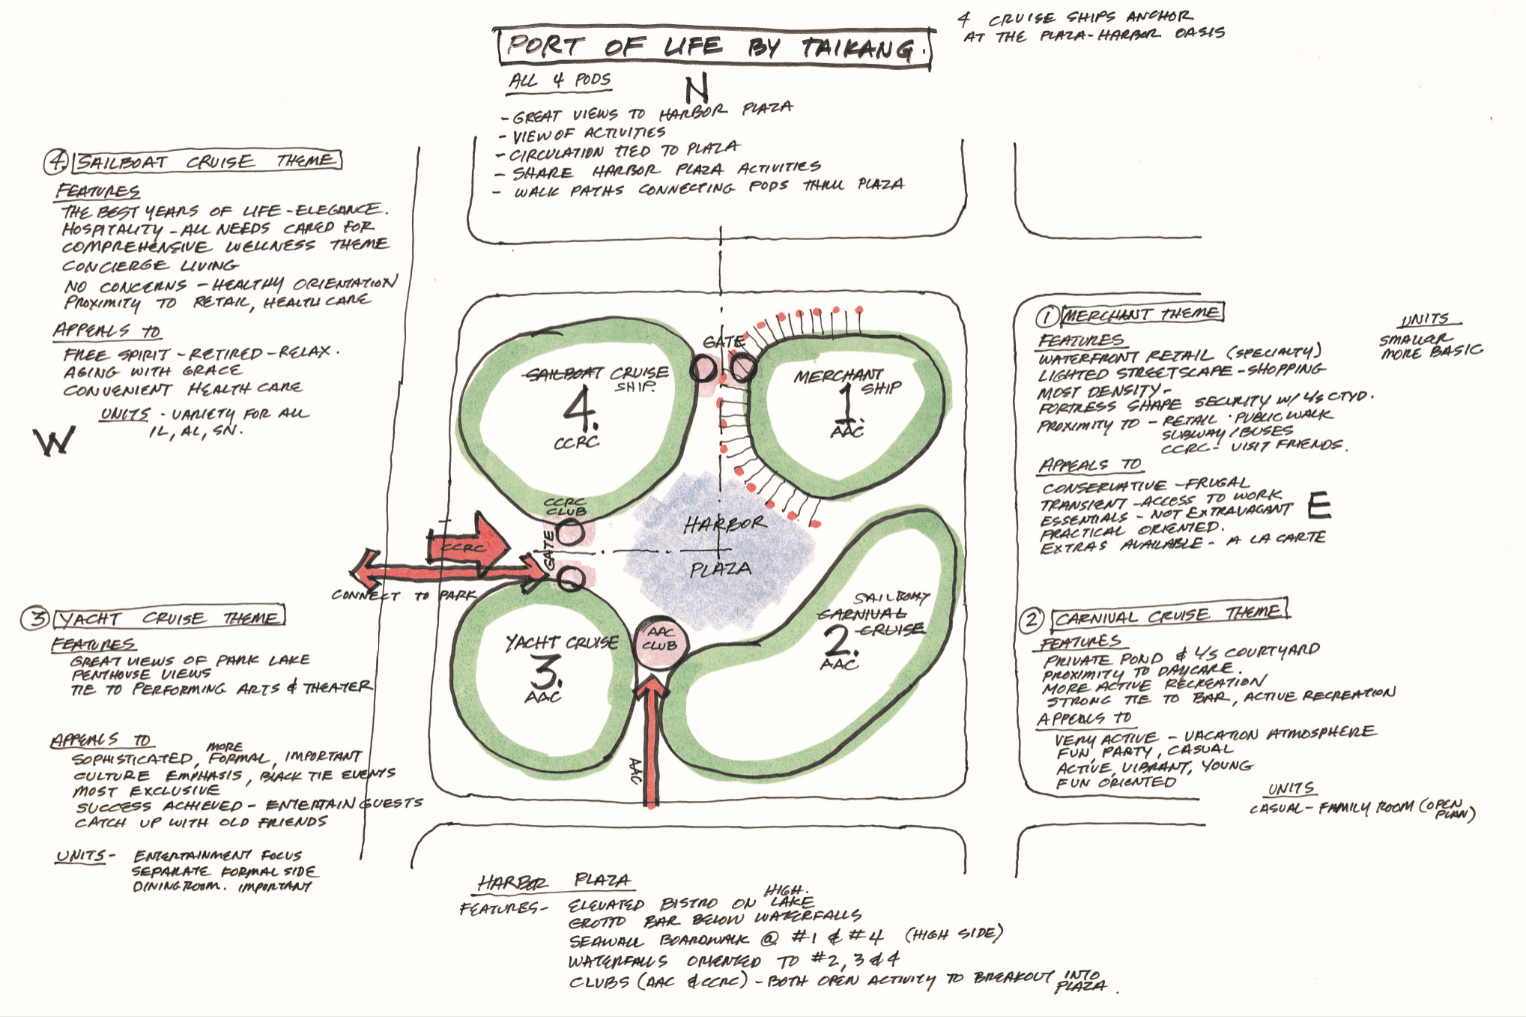 PORT OF LIFE BY TAIKANG.
4 CRUISE SHIPS ANCHOR
AT THE PLAZA-HARBOR OASIS
ALL 4 PODS
N
- GREAT VIEWS TO HARBOR PLAZA
- VIEW OF ACTIVITIES
- CIRCULATION TIED TO PLAZA
- SHARE HARBOR PLAZA ACTIVITIES
- WALK PATHS CONNECTING PODS THRU PLAZA
4. SAILBOAT CRUISE THEME
FEATURES
THE BEST YEARS OF LIFE - ELEGANCE.
HOSPITALITY - ALL NEEDS CARED FOR
COMPREHENSIVE WELLNESS THEME
CONCIERGE LIVING
NO CONCERNS - HEALTHY ORIENTATION
PROXIMITY TO RETAIL, HEALTH CARE
APPEALS TO
FREE SPIRIT - RETIRED - RELAX.
AGING WITH GRACE
CONVENIENT HEALTH CARE
UNITS - VARIETY FOR ALL
IL, AL, SN.
W
3 YACHT CRUISE THEME
FEATURES
GREAT VIEWS OF PARK LAKE
PENTHOUSE VIEWS
TIE TO PERFORMING ARTS & THEATER
APPEALS TO
SOPHISTICATED, MORE FORMAL, IMPORTANT
CULTURE EMPHASIS, BLACK TIE EVENTS
MOST EXCLUSIVE
SUCCESS ACHIEVED - ENTERTAIN GUESTS
CATCH UP WITH OLD FRIENDS
UNITS - ENTERTAINMENT FOCUS
SEPARATE FORMAL SIDE
DINING ROOM. IMPORTANT
SAILBOAT CRUISE
SHIP.
4.
CCRC
GATE
MERCHANT
SHIP
1.
AAC
CCRC
CLUB
GATE
CCRC
CONNECT TO PARK
HARBOR
PLAZA
YACHT CRUISE
3.
AAC
AAC
CLUB
AAC
SAILBOAT
CARNIVAL
CRUISE
2.
AAC
1 MERCHANT THEME
FEATURES
WATERFRONT RETAIL (SPECIALTY)
LIGHTED STREETSCAPE - SHOPPING
MOST DENSITY -
FORTRESS SHAPE SECURITY W/ L/S CTYD.
PROXIMITY TO - RETAIL · PUBLIC WALK
SUBWAY/BUSES
CCRC - VISIT FRIENDS.
APPEALS TO
CONSERVATIVE - FRUGAL
TRANSIENT - ACCESS TO WORK
ESSENTIALS - NOT EXTRAVAGANT
PRACTICAL ORIENTED.
EXTRAS AVAILABLE - A LA CARTE
UNITS
SMALLER
MORE BASIC
E
2 CARNIVAL CRUISE THEME
FEATURES
PRIVATE POND & L/S COURTYARD
PROXIMITY TO DAYCARE.
MORE ACTIVE RECREATION
STRONG TIE TO BAR, ACTIVE RECREATION
APPEALS TO
VERY ACTIVE - VACATION ATMOSPHERE
FUN, PARTY, CASUAL
ACTIVE, VIBRANT, YOUNG
FUN ORIENTED
UNITS
CASUAL - FAMILY ROOM (OPEN
PLAN)
HARBOR PLAZA
FEATURES - ELEVATED BISTRO ON HIGH. LAKE
GROTTO BAR BELOW WATERFALLS
SEAWALL BOARDWALK @ #1 & #4 (HIGH SIDE)
WATERFALLS ORIENTED TO #2, 3 & 4
CLUBS (AAC & CCRC) - BOTH OPEN ACTIVITY TO BREAKOUT INTO
PLAZA.